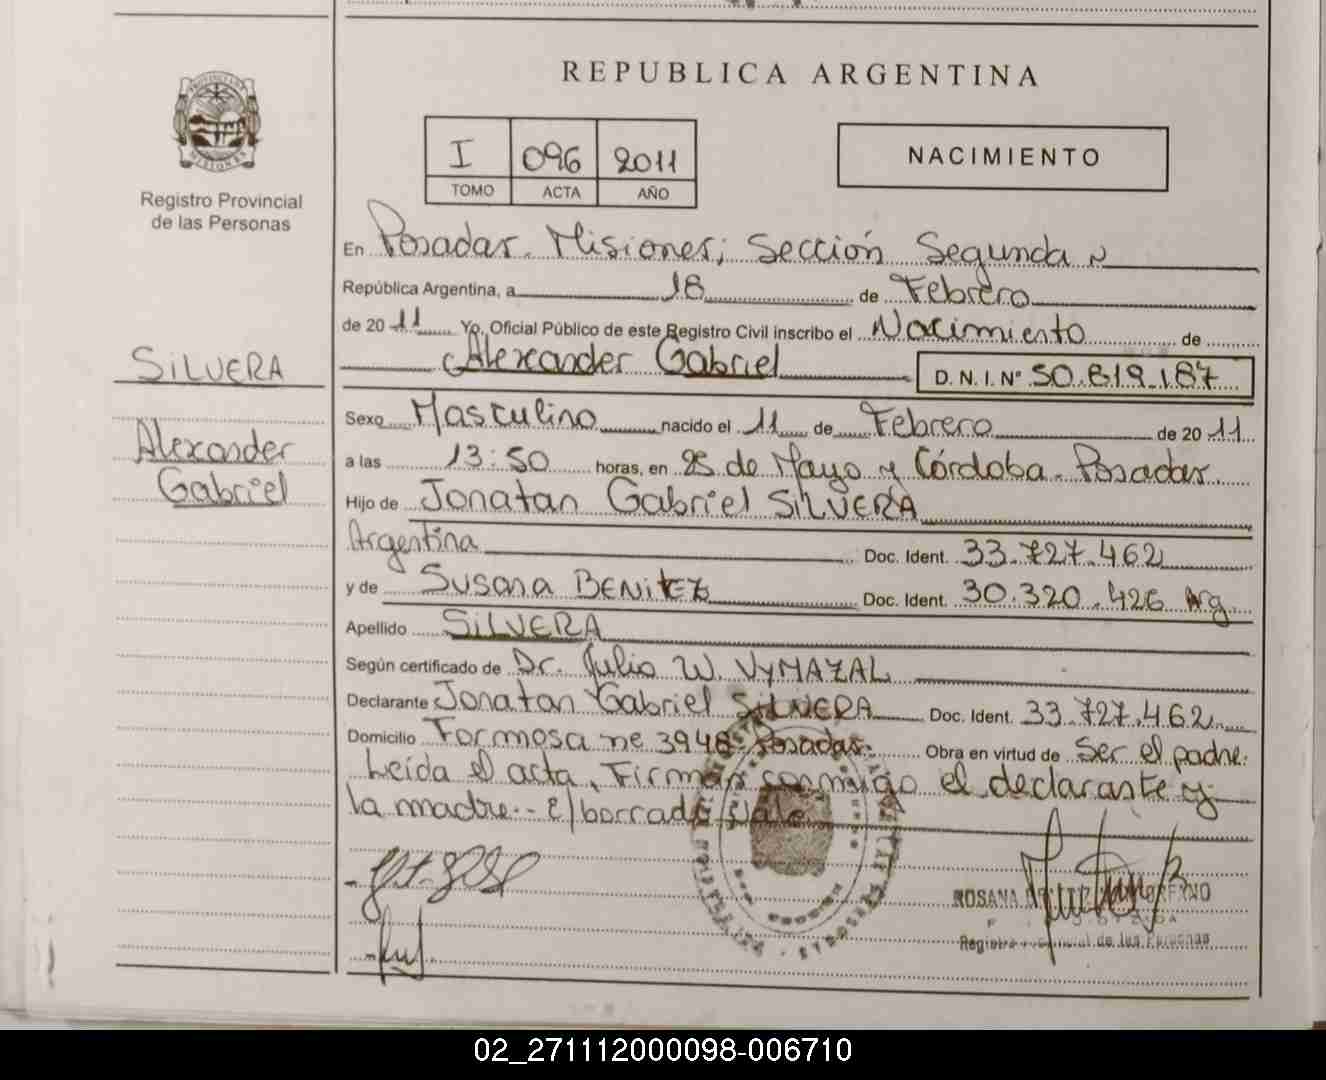 REPUBLICA ARGENTINA
I 096 2011
TOMO ACTA AÑO
NACIMIENTO
Registro Provincial
de las Personas
SILVERA
Alexander
Gabriel
En Posadas. Misiones; Sección Segunda
República Argentina, a 18 de Febrero
de 2011 Yo, Oficial Público de este Registro Civil inscribo el Nacimiento de
Alexander Gabriel D. N. I. Nº 50.819.187
Sexo Masculino nacido el 11 de Febrero de 2011
a las 13:50 horas, en 25 de Mayo y Córdoba. Posadas
Hijo de Jonatan Gabriel SILVERA
Argentina Doc. Ident. 33.727.462
y de Susana BENITEZ Doc. Ident. 30.320.426 Arg
Apellido SILVERA
Según certificado de Dr. Julio W. VYMAZAL
Declarante Jonatan Gabriel SILVERA Doc. Ident. 33.727.462
Domicilio Formosa nº 3948. Posadas. Obra en virtud de Ser el padre.
Leída el acta, Firman conmigo el declarante y
la madre.- E/borrado Vale
ROSANA
Registro Provincial de las Personas
02_271112000098-006710